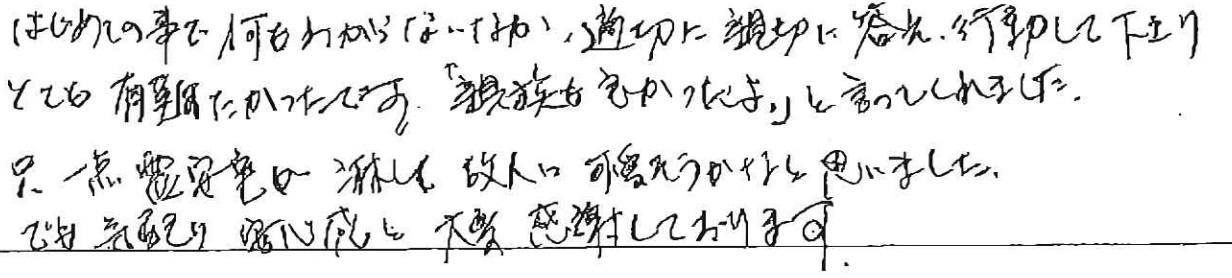 はじめての事で何もわからないなか、適切に親切に答え、行動して下さり
とても有難たかったです。「親族も良かったよ。」と言ってくれました。
只、一点霊安室が淋しく故人に可愛そうかなと思いました。
でも気配り 安心感と大変感謝しております。